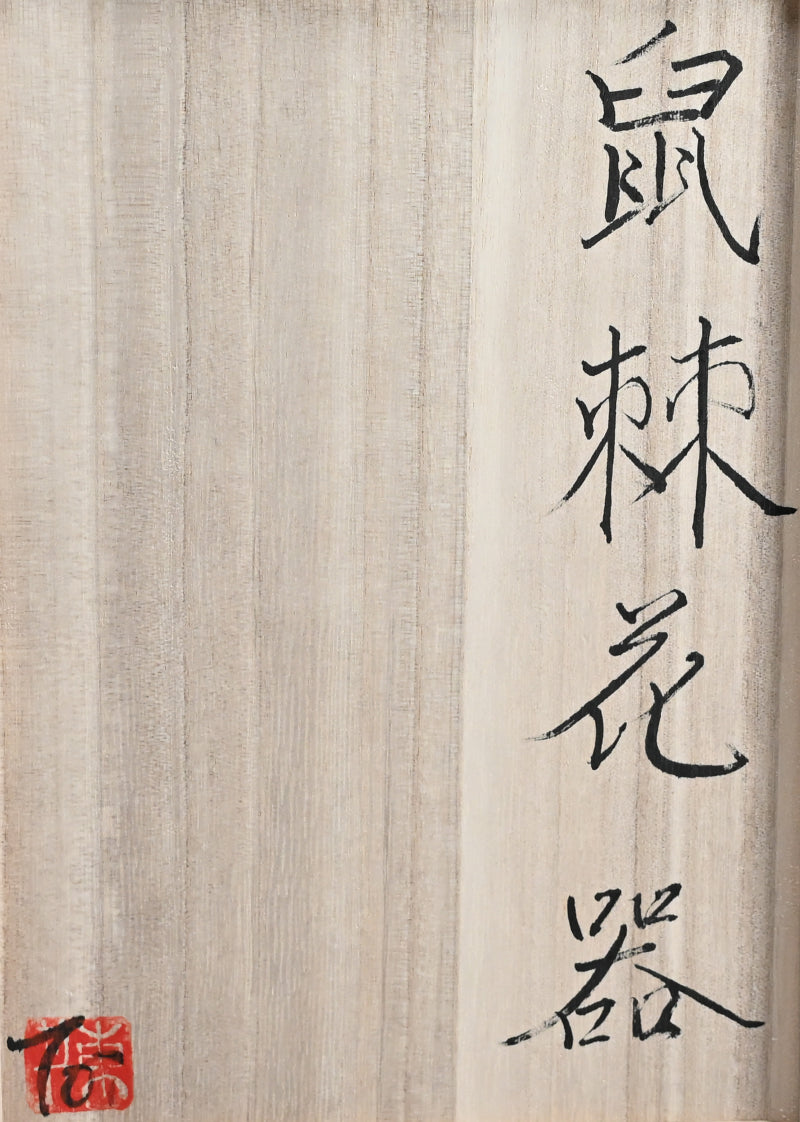 鼠棘花器